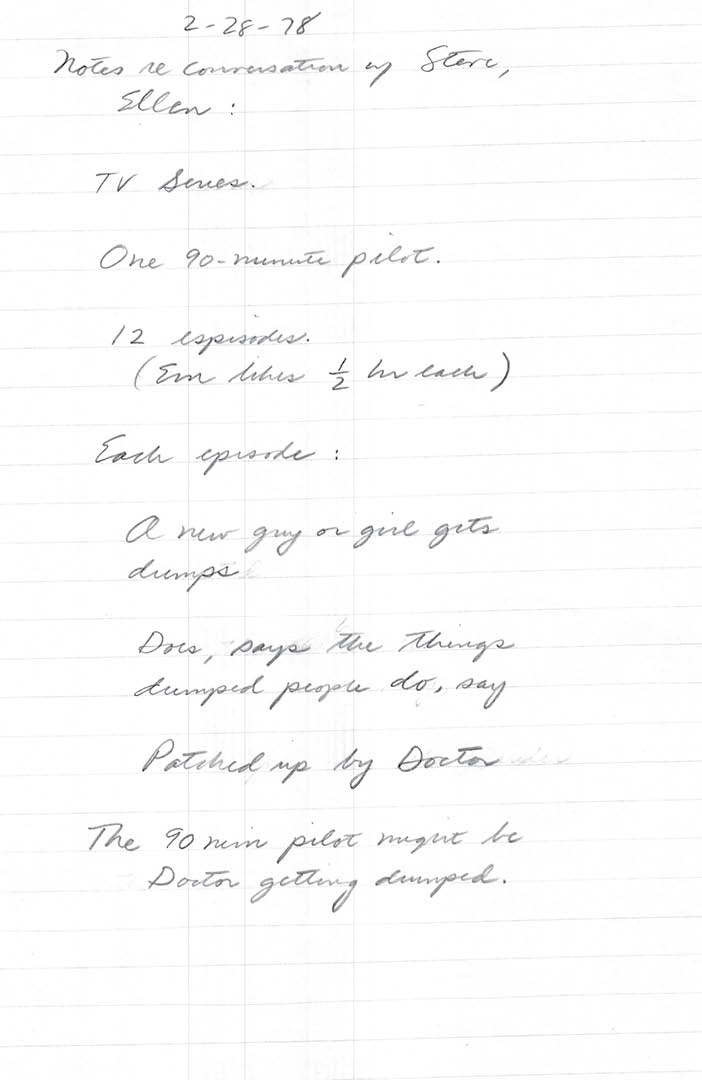 2-28-78
Notes re conversation w/ Steve,
Ellen :
TV Series.
One 90-minute pilot.
12 espisodes.
(Em likes ½ hr each)
Each episode :
A new guy or girl gets
dumps
Does, says the things
dumped people do, say
Patched up by Doctor
The 90 min pilot might be
Doctor getting dumped.